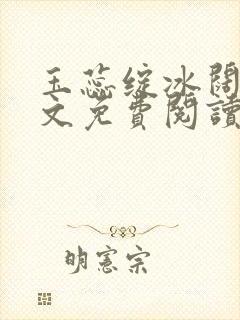 玉蕊绽冰閼
文免費閱讀
明憲宗